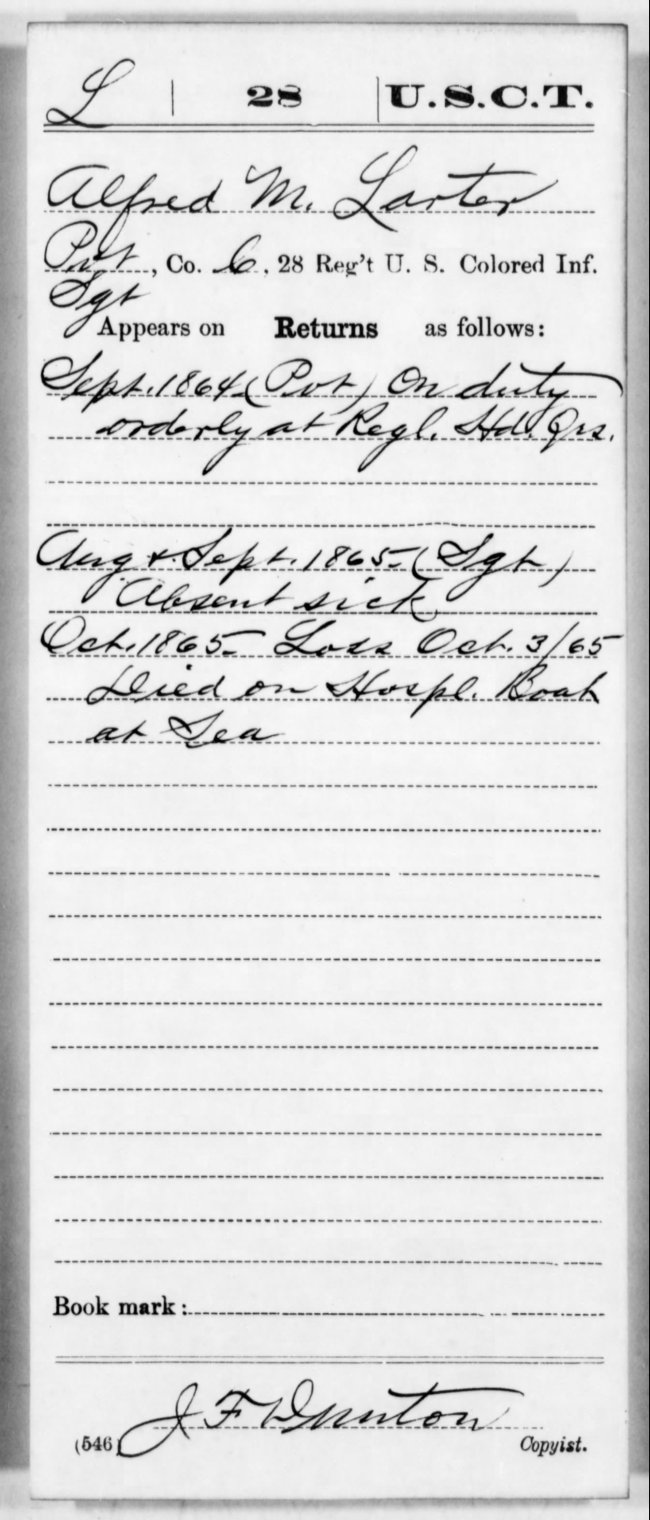 L | 28 | U.S.C.T.
Alfred M. Larter
Pvt, Co. C, 28 Reg't U. S. Colored Inf.
Sgt
Appears on Returns as follows:
Sept. 1864 (Pvt) On duty
orderly at Regl. Hd. Qrs.
Aug & Sept. 1865 (Sgt)
Absent sick
Oct. 1865 Loss Oct. 3/65
Died on Hospl. Boat
at Sea
Book mark:
J F Dunton
(546) Copyist.